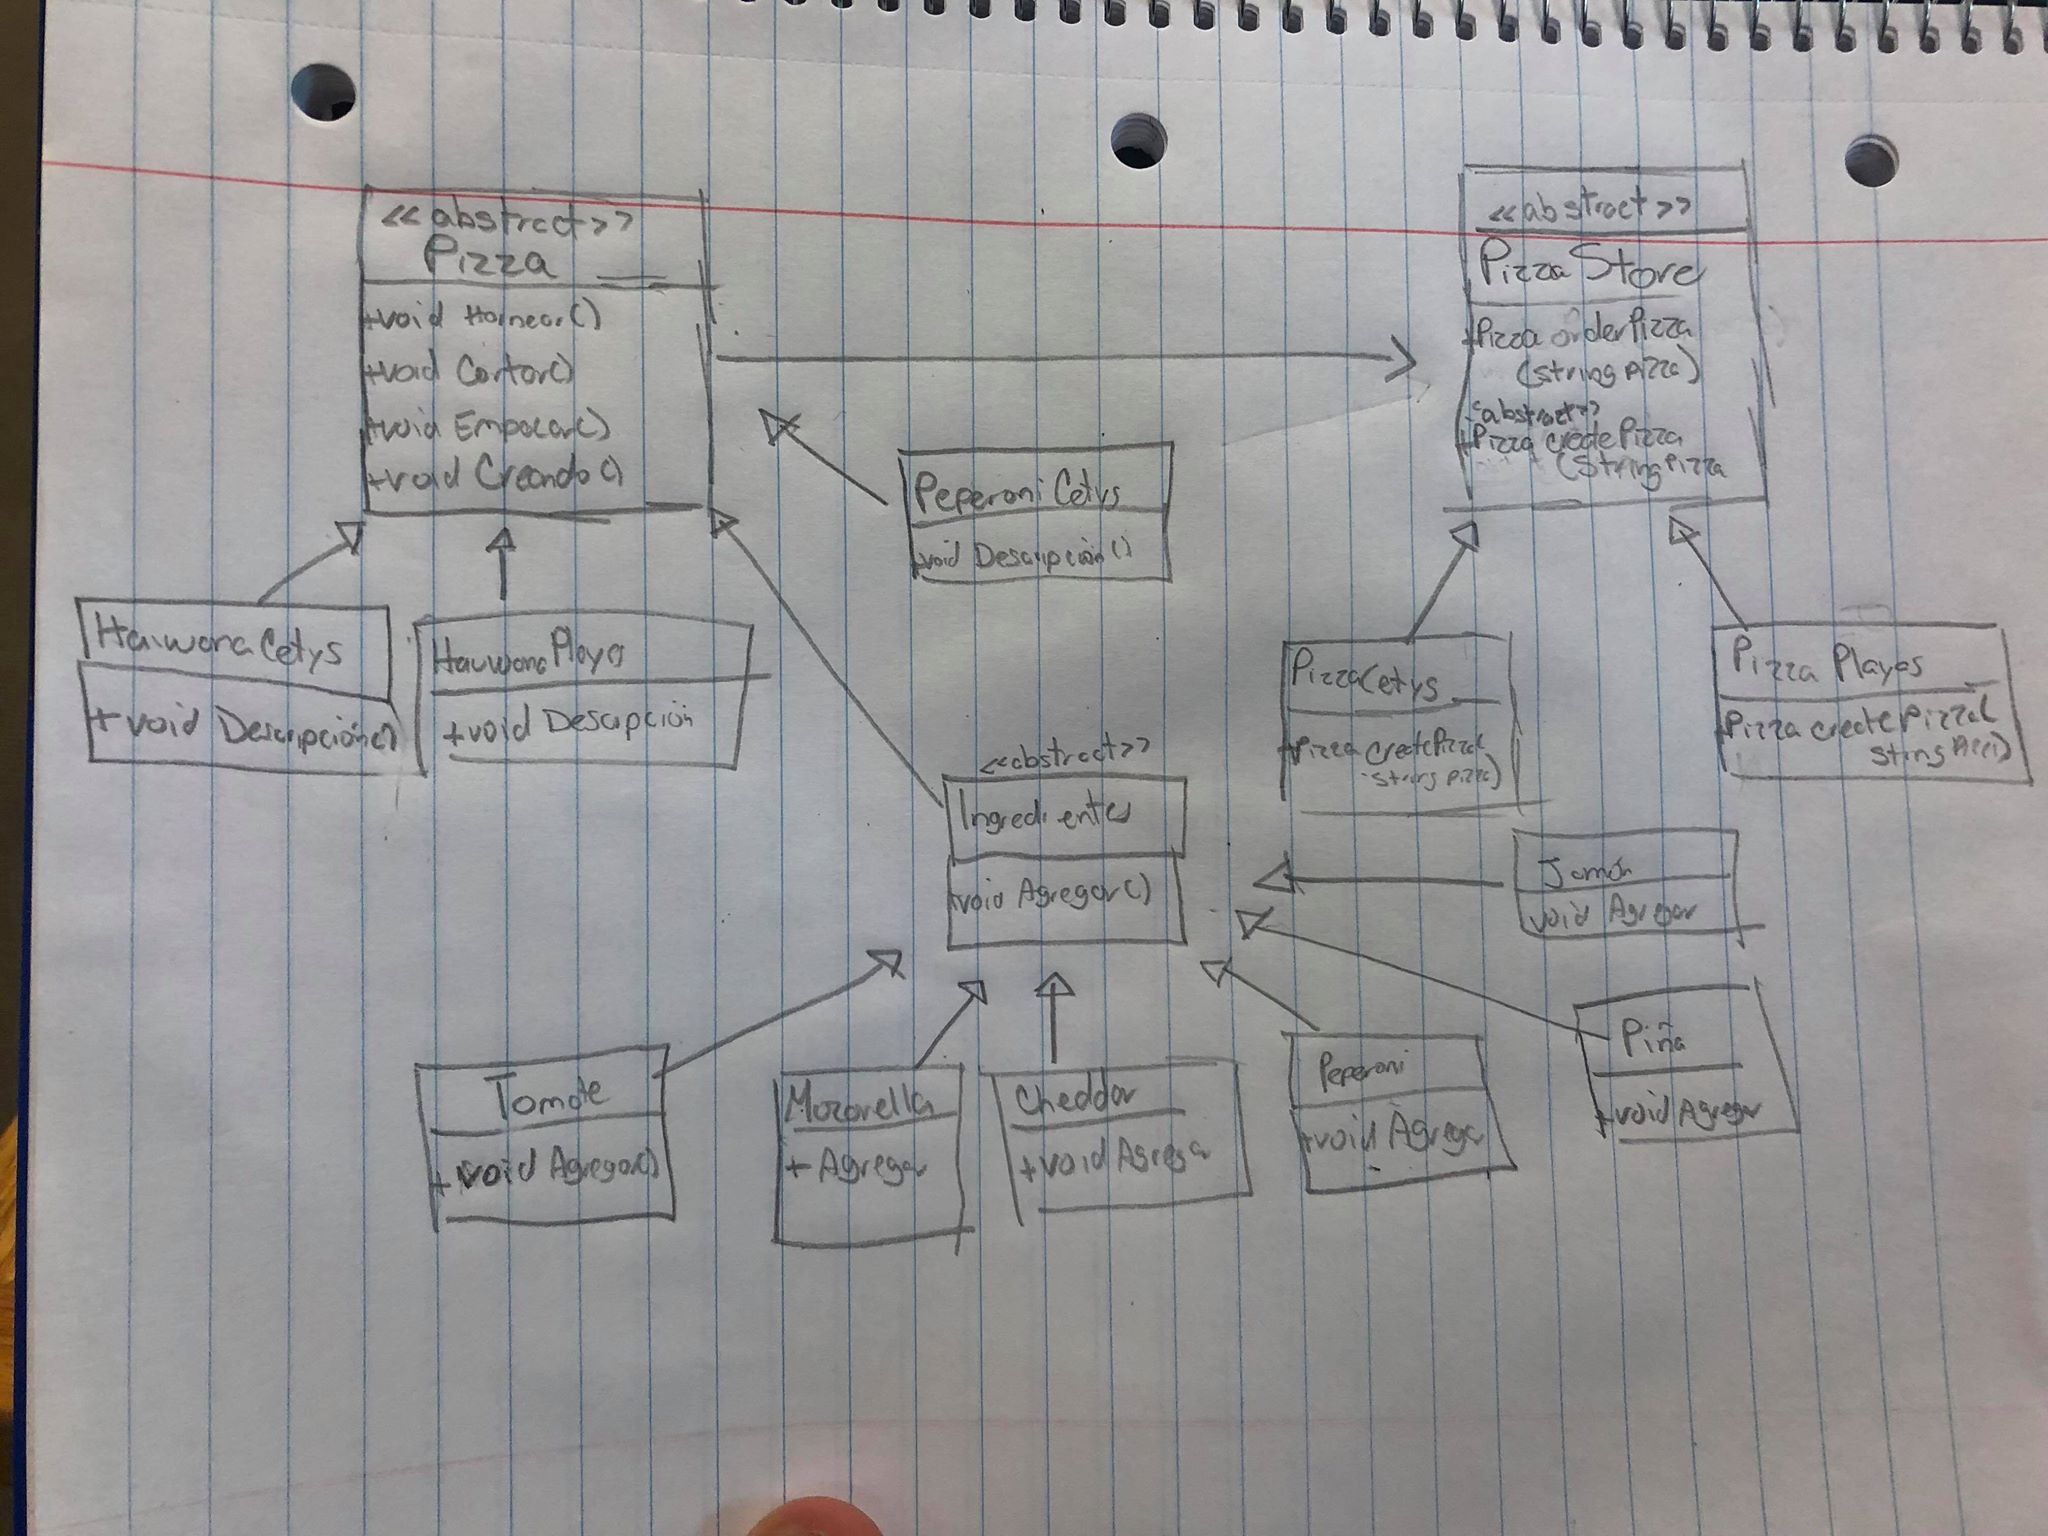 <<abstract>>
Pizza
+void Hornear()
+void Cortar()
+void Empacar()
+void Creando()
<<abstract>>
Pizza Store
+Pizza orderPizza
(string pizza)
<abstract>>
+Pizza createPizza
(String Pizza
Peperoni Cetys
+void Descripción()
Haiwana Cetys
+void Descripción()
Hauwana Playa
+void Descripción
Pizza Cetys
+Pizza createPizza(
string pizza)
Pizza Playas
Pizza createPizza(
<<abstract>>
Ingredientes
+void Agregar()
Jamón
void Agregar
Piña
+void Agregar
Tomate
+void Agregar()
Mozarella
+ Agregar
Cheddar
+void Agregar
Peperoni
+void Agregar